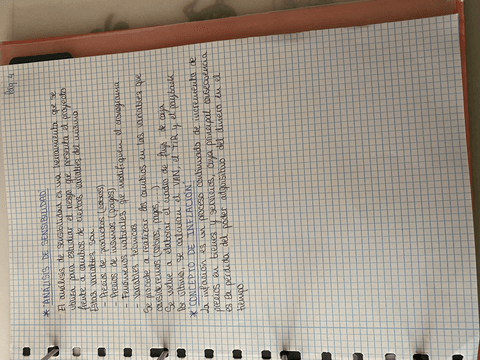 Pág. 4
* ANÁLISIS DE SENSIBILIDAD
El análisis de sensibilidad es una herramienta que se
utiliza para estudiar el riesgo que presenta el proyecto
frente a cambios de ciertas variables del mismo
Estas variables son:
- Precios de productos (cobros)
- Precios de insumos (pagos)
- Fenómenos naturales que modifiquen el cronograma
- Variables técnicas
Se procede a realizar los cambios en las variables que
consideremos (cobros, pagos, ...)
Se vuelve a elaborar el cuadro de flujo de caja
Por último, se calculan el VAN, el TIR y el payback
* CONCEPTO DE INFLACIÓN
La inflación es un proceso continuado de incremento de
precios en bienes y servicios, cuya principal consecuencia
es la pérdida del poder adquisitivo del dinero en el
tiempo